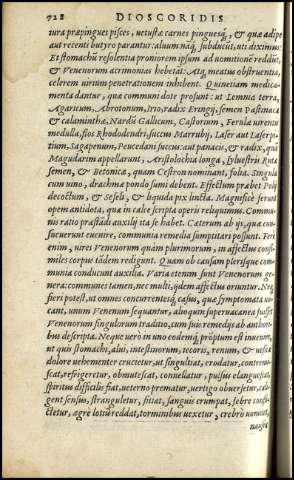 728 DIOSCORIDIS
tura præpingues pisces, uetustæ carnes pinguesq́, & quæ adipe
aut recenti butyro parantur: aluum naq́; subducũt, uti diximus.
Et stomachũ resoluentia proniorem ipsum ad uomitionẽ reddũt,
& Venenorum acrimonias hebetãt: Atq; meatus obstruentia,
celerem uirium penetrationem inhibent. Quinetiam medica-
menta dantur, quæ communi dote prosunt: ut Lemnia terra,
Agaricum, Abrotonum, Irio, radix Eryngij, semen Pastinacæ
& calaminthæ, Nardũ Gallicum, Castorum, Ferulæ uirentis
medulla, flos Rhododendri, succus Marrubij, Laser aut Laserpi-
tium, Sagapenum, Peucedani succus: aut panacis, & radix, quã
Magudarim appellarunt, Aristolochia longa, syluestris Rutæ
semen, & Betonica, quam Cestron nominant, folia. Singula
cum uino, drachmæ pondo sumi debent. Effectum præbet Polij
decoctum, & Seseli, & liquida pix lincta. Magnificè ferunt
opem antidota, quæ in calce scripta operi reliquimus. Commu-
nis ratio præstãdi auxilij ita se habet. Cæterum ab ijs, quæ con-
sueuerunt euenire, communia remedia sumptitari possunt. Fere
enim, uires Venenorum quàm plurimorum, in affectus consi-
miles corpus tãdem redigunt. Quam ob causam plerisque com-
munia conducunt auxilia. Varia etenim sunt Venenorum ge-
nera: communes tamen, nec multi, ijdem affectus oriuntur. Neq́;
fieri potest, ut omnes concurrentesq́, casus, quæ symptomata uo-
cant, unum Venenum sequantur, alioqui superuacanea fuisset
Venenorum singulorum traditio, cum suis remedijs ab authori-
bus descripta. Neque uerò in uno eodemq́; prõptum est inueniri,
ut quis stomachi, alui, intestinorum, iecoris, renum, & uesicæ
dolore uehementer crucietur, ut singultiat, erodatur, contremi-
scat, refrigeretur, obmutescat, conuellatur, pulsus elanguescat,
spiritus difficilis fiat, ueterno prematur, uertigo obuersetur, ca-
gent sensus, stranguletur, sitiat, sanguis erumpat, febre conflic-
tetur, ægrè lotiũ reddat, torminibus uexetur, crebrò uomat,